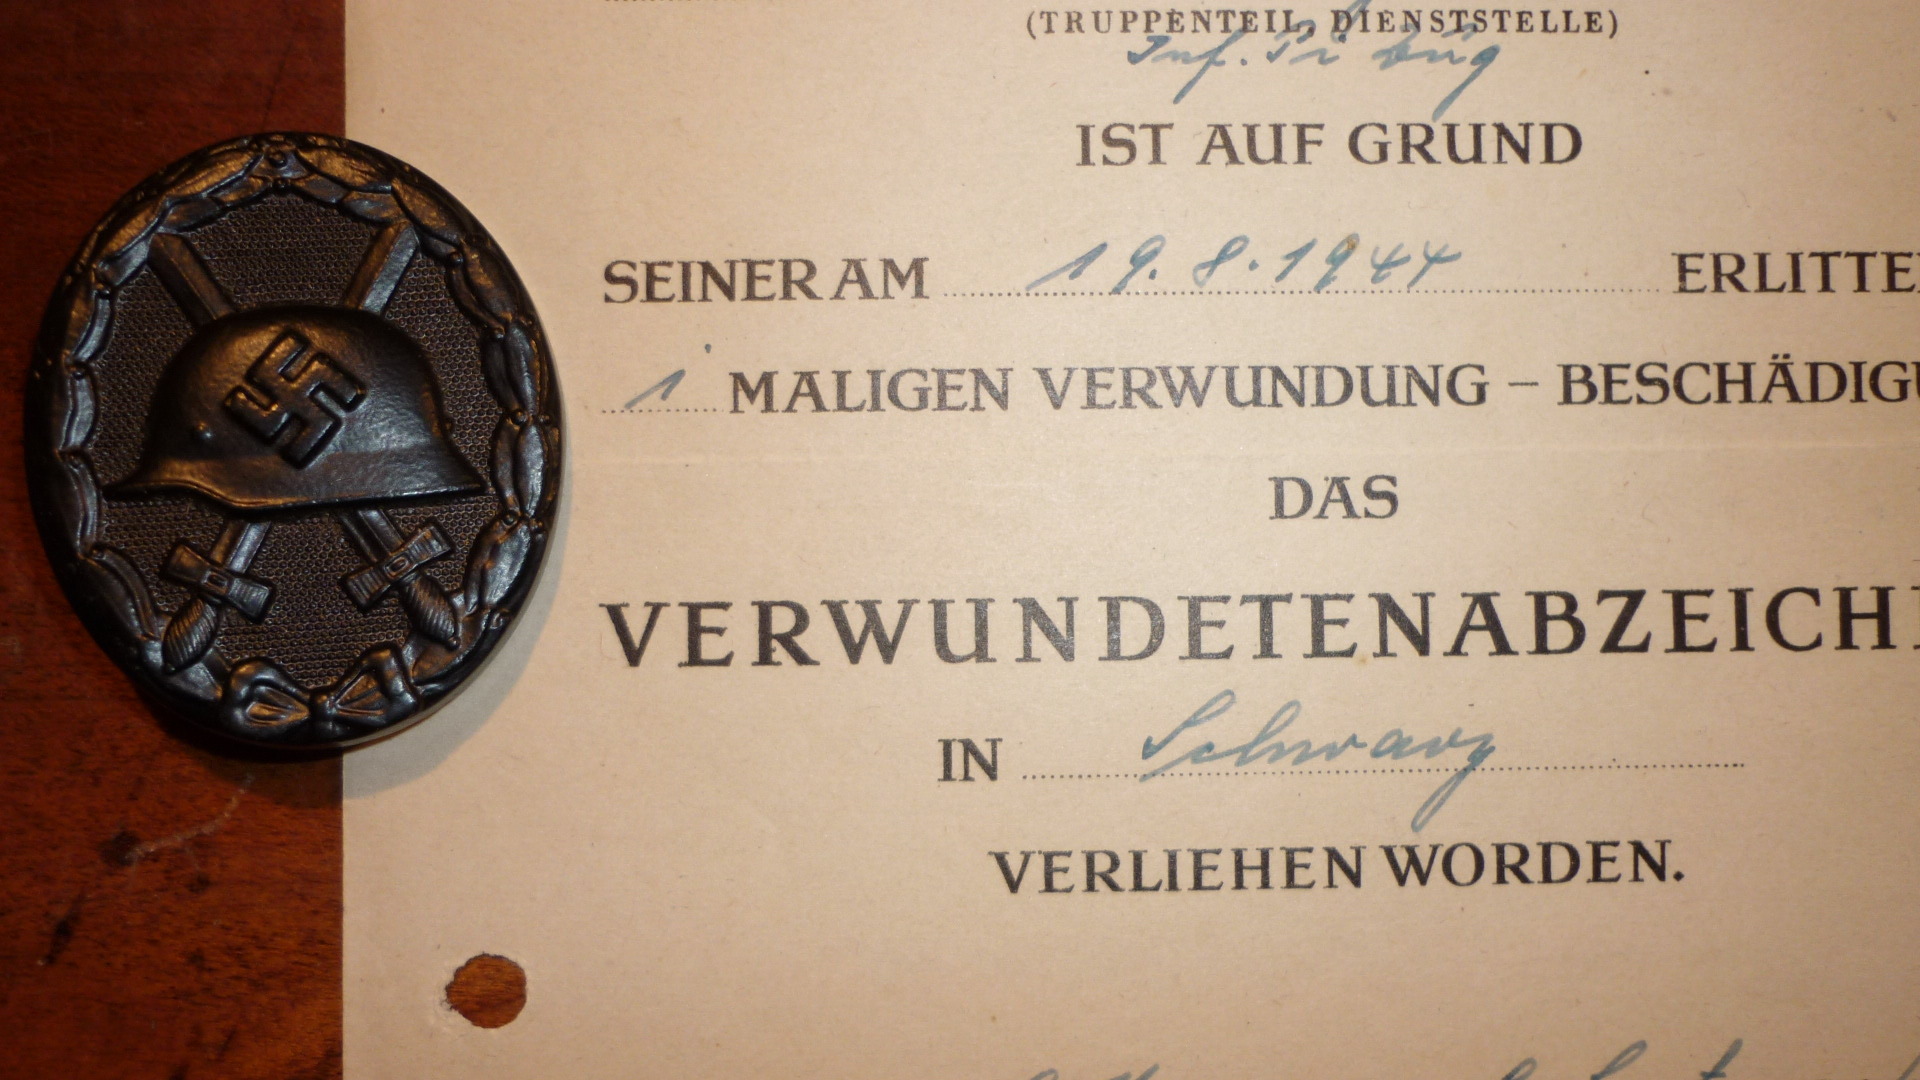 (TRUPPENTEIL, DIENSTSTELLE)
Inf. Pi Zug
IST AUF GRUND
SEINER AM 19.8.1944 ERLITTE
1 MALIGEN VERWUNDUNG – BESCHÄDIGU
DAS
VERWUNDETENABZEICH
IN Schwarz
VERLIEHEN WORDEN.